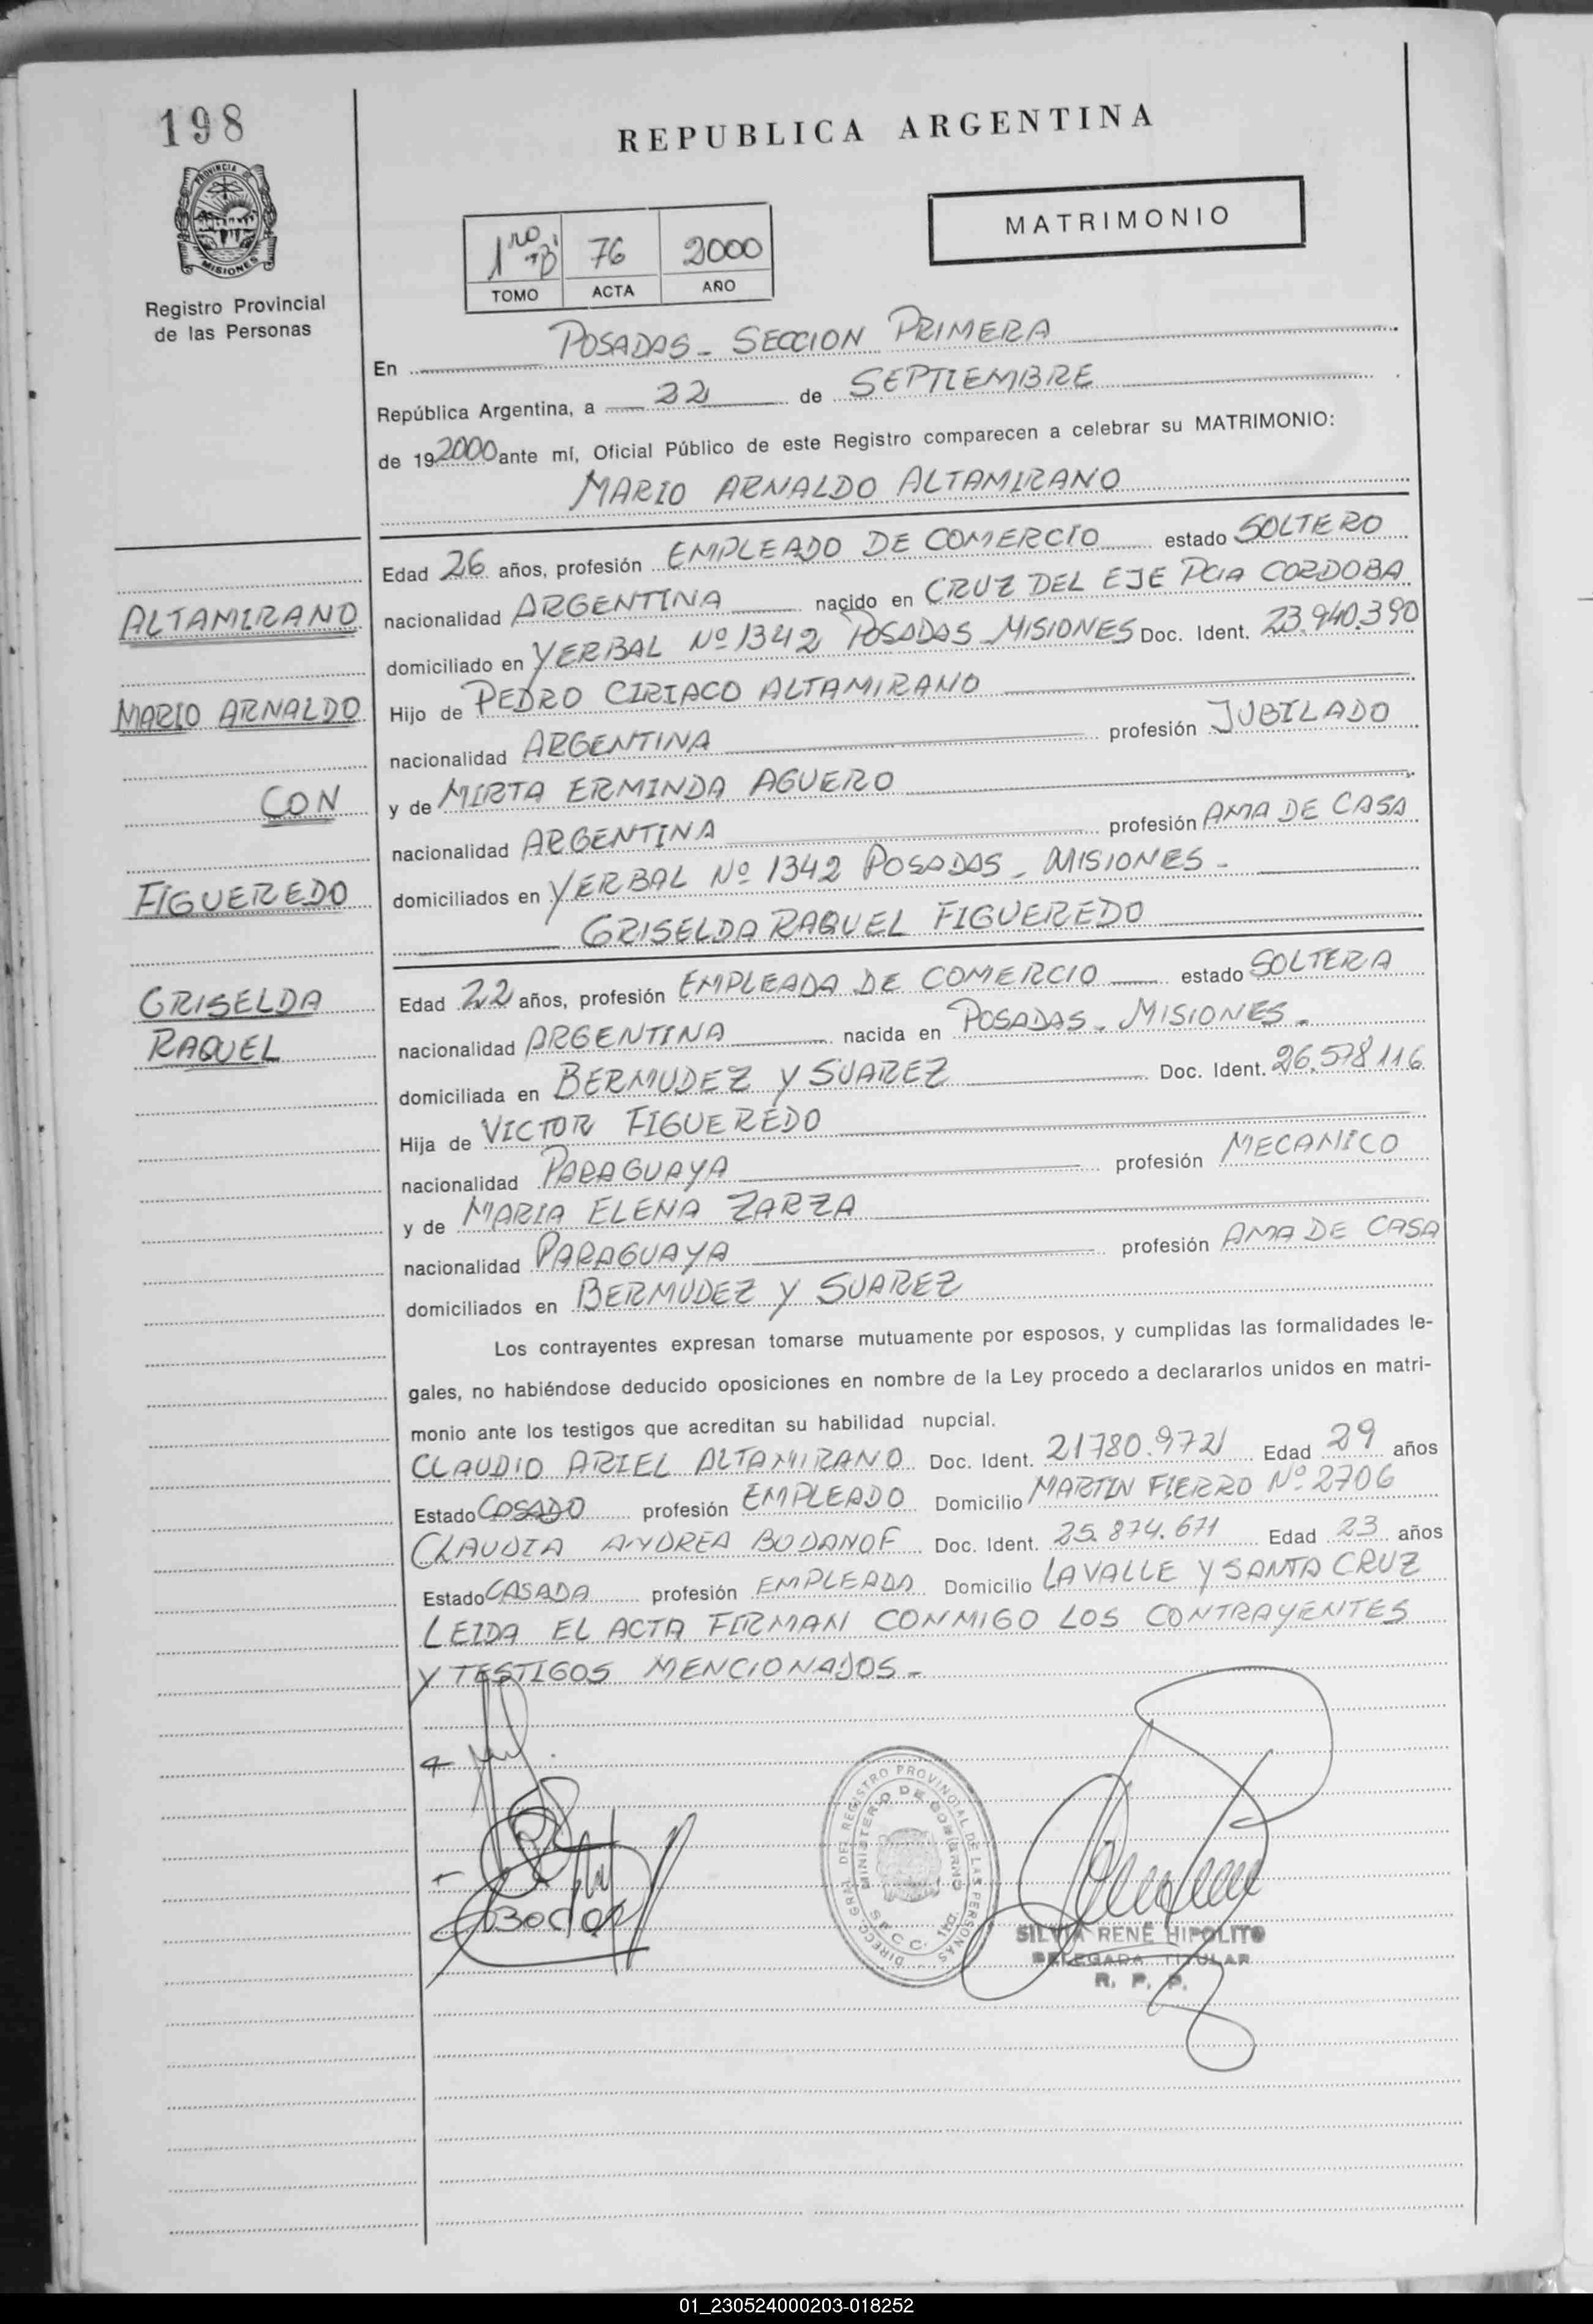 198
REPUBLICA ARGENTINA
PROVINCIA DE
MISIONES
Registro Provincial
de las Personas
MATRIMONIO
1ro "B" 76 2000
TOMO ACTA AÑO
En POSADAS - SECCION PRIMERA
República Argentina, a 22 de SEPTIEMBRE
de 19 2000 ante mí, Oficial Público de este Registro comparecen a celebrar su MATRIMONIO:
MARIO ARNALDO ALTAMIRANO
Edad 26 años, profesión EMPLEADO DE COMERCIO estado SOLTERO
nacionalidad ARGENTINA nacido en CRUZ DEL EJE PCIA CORDOBA
domiciliado en YERBAL Nº 1342 POSADAS MISIONES Doc. Ident. 23.940.390
Hijo de PEDRO CIRIACO ALTAMIRANO
nacionalidad ARGENTINA profesión JUBILADO
y de MIRTA ERMINDA AGUERO
nacionalidad ARGENTINA profesión AMA DE CASA
domiciliados en YERBAL Nº 1342 POSADAS - MISIONES -
GRISELDA RAQUEL FIGUEREDO
Edad 22 años, profesión EMPLEADA DE COMERCIO estado SOLTERA
nacionalidad ARGENTINA nacida en POSADAS - MISIONES -
domiciliada en BERMUDEZ Y SUAREZ Doc. Ident. 26.578.116
Hija de VICTOR FIGUEREDO
nacionalidad PARAGUAYA profesión MECANICO
y de MARIA ELENA ZARZA
nacionalidad PARAGUAYA profesión AMA DE CASA
domiciliados en BERMUDEZ Y SUAREZ
ALTAMIRANO
MARIO ARNALDO
CON
FIGUEREDO
GRISELDA
RAQUEL
Los contrayentes expresan tomarse mutuamente por esposos, y cumplidas las formalidades le-
gales, no habiéndose deducido oposiciones en nombre de la Ley procedo a declararlos unidos en matri-
monio ante los testigos que acreditan su habilidad nupcial.
CLAUDIO ARIEL ALTAMIRANO Doc. Ident. 21780.972 Edad 29 años
Estado CASADO profesión EMPLEADO Domicilio MARTIN FIERRO Nº 2706
CLAUDIA ANDREA BODANOF Doc. Ident. 25.874.671 Edad 23 años
Estado CASADA profesión EMPLEADA Domicilio LAVALLE Y SANTA CRUZ
LEIDA EL ACTA FIRMAN CONMIGO LOS CONTRAYENTES
Y TESTIGOS MENCIONADOS -
DIRECC. GRAL. DEL REGISTRO PROVINCIAL DE LAS PERSONAS
MINISTERIO DE GOBIERNO
SILVIA RENÉ HIPOLITO
DELEGADA TITULAR
R. P. P.
01_230524000203-018252